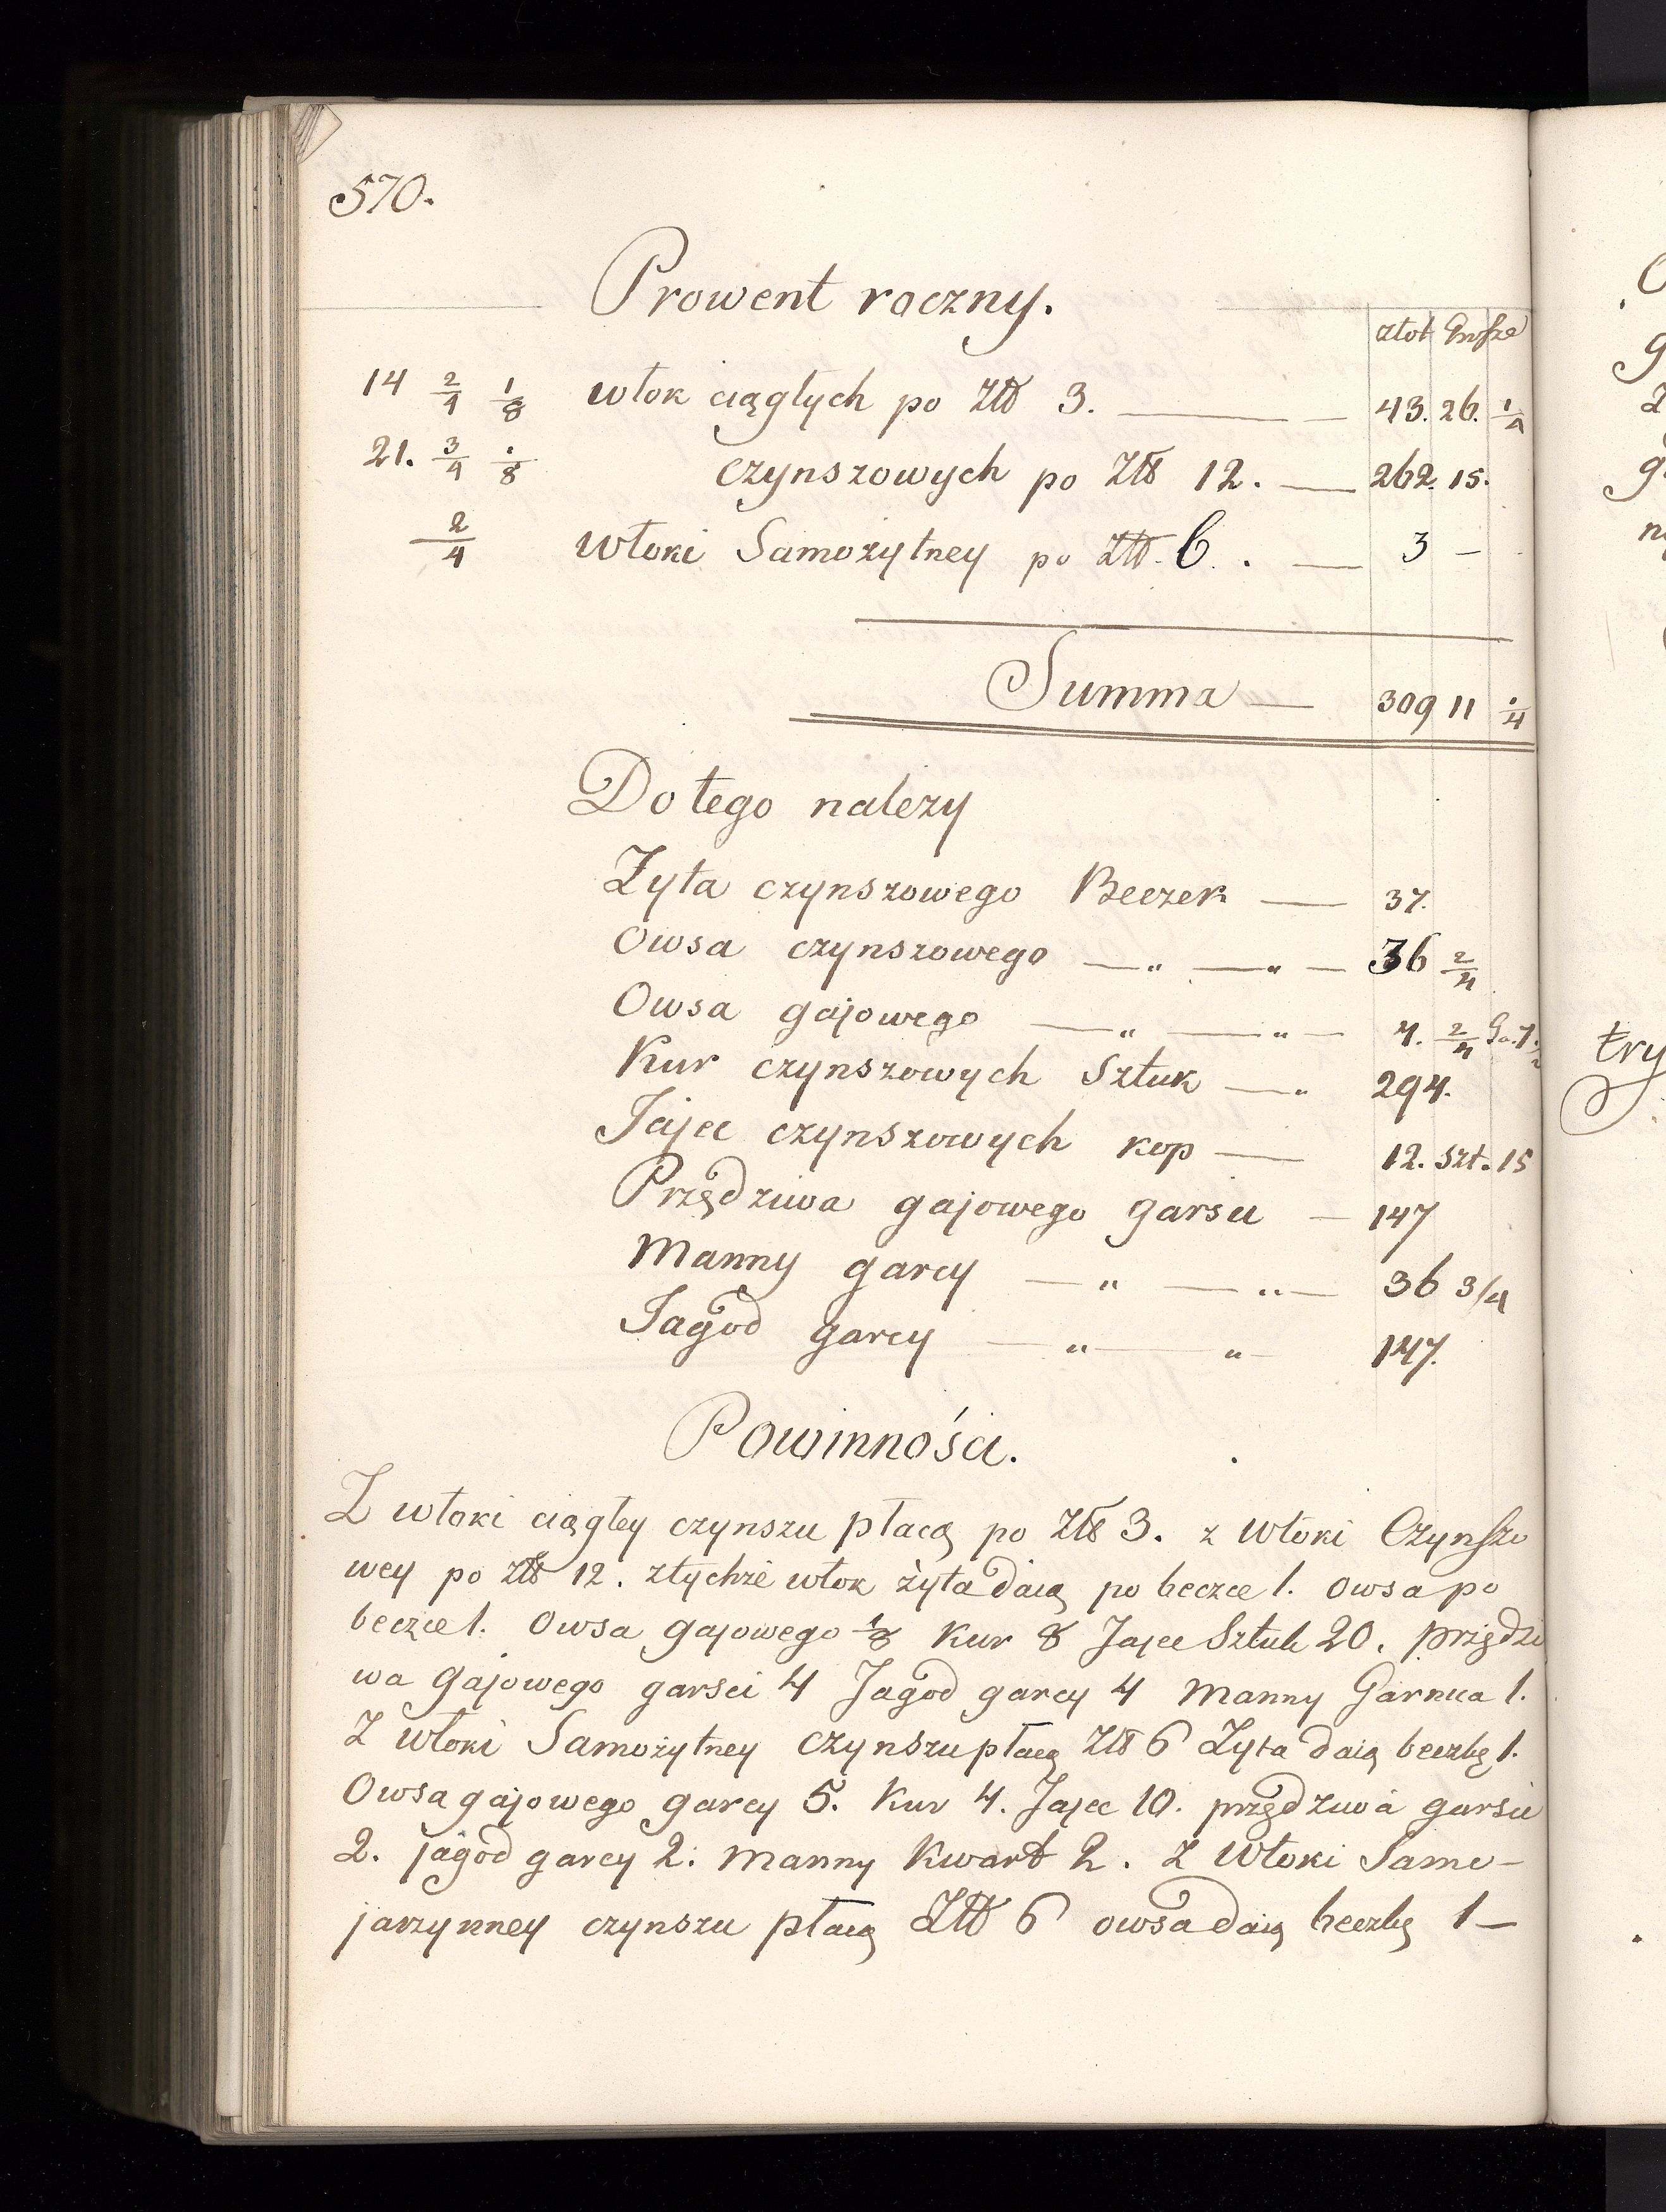 570.
Prowent roczny.
złot Grosze
14 2/4 1/8 włok ciągłych po Złł 3. — 43. 26. 1/4
21. 3/4 1/8 czynszowych po Złł 12. — 262. 15.
2/4 włoki Samożytney po Złł. 6. . — 3 —
Summa — 309 11 1/4
Do tego nalezy
Zyta czynszowego Beczek — 37.
Owsa czynszowego —„ —„— 36 2/4
Owsa gajowego —„ —„— 4. 2/4 G. 7.
Kur czynszowych Sztuk —„ 294.
Jajec czynszowych kop — 12. szt. 15
Przędziwa gajowego garsci — 147
Manny garcy —„ —„— 36 3/4
Jagod garcy —„ —„— 147.
Powinności.
Z włoki ciągłey czynszu płacą po Złł 3. z włoki Czynszo
wey po złł 12. ztychże włok żyta daią po beczce 1. owsa po
beczce 1. Owsa gajowego 1/8 Kur 8 Jajec Sztuk 20. przędzi
wa gajowego garsci 4 Jagod garcy 4 Manny Garnca 1.
Z włoki Samożytney czynszu płacą Złł 6 Zyta daią beczkę 1.
Owsa gajowego garcy 5. Kur 4. Jajec 10. przędziwa garsci
2. jagod garcy 2. Manny Kwart 2. Z Włoki Samo-
jarzynney czynszu płacą Złł 6 owsa daią beczkę 1 —
try